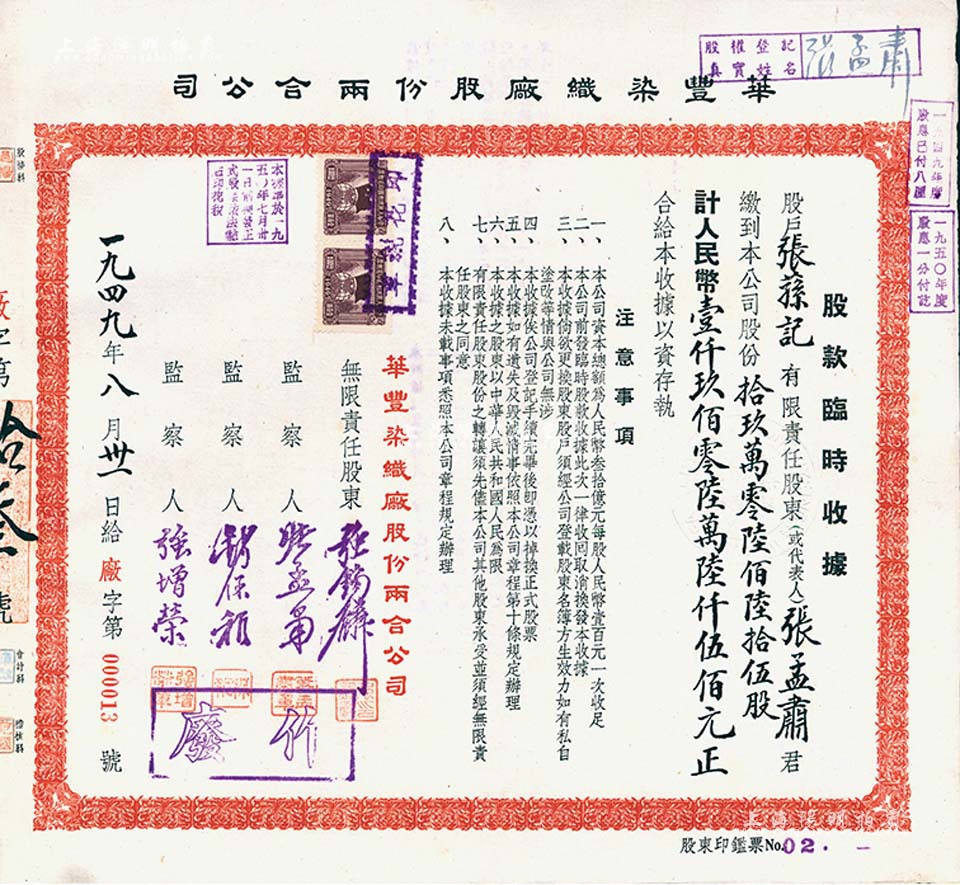 上海陽明拍賣
股權登記
真實姓名
張孟肅
華豐染織廠股份兩合公司
一九四九年度
股息已付八厘
一九五〇年度
股息一分付訖
股款臨時收據
股戶張蓀記有限責任股東(或代表人)張孟肅君
繳到本公司股份拾玖萬零陸佰陸拾伍股
計人民幣壹仟玖佰零陸萬陸仟伍佰元正
合給本收據以資存執
注意事項
一、本公司資本總額為人民幣叁拾億元每股人民幣壹百元一次收足
二、本公司前發臨時股款收據此次一律收回取消換發本收據
三、本收據倘欲更換股東股戶須經公司登載股東名簿方生效力如有私自
塗改等情與公司無涉
四、本收據俟公司登記手續完畢後即憑以掉換正式股票
五、本收據如有遺失及毀滅情事依照本公司章程第十條規定辦理
六、本收據之股東以中華人民共和國人民為限
七、有限責任股東股份之轉讓須先儘本公司其他股東承受並須經無限責
任股東之同意
八、本收據未載事項悉照本公司章程規定辦理
華豐染織廠股份兩合公司
無限責任股東
監察人
監察人
監察人 強增榮
作廢
一九四九年八月卅一日給廠字第000013號
廠字第拾叁號
會計科
股東印鑑票No.02.
上海陽明拍賣